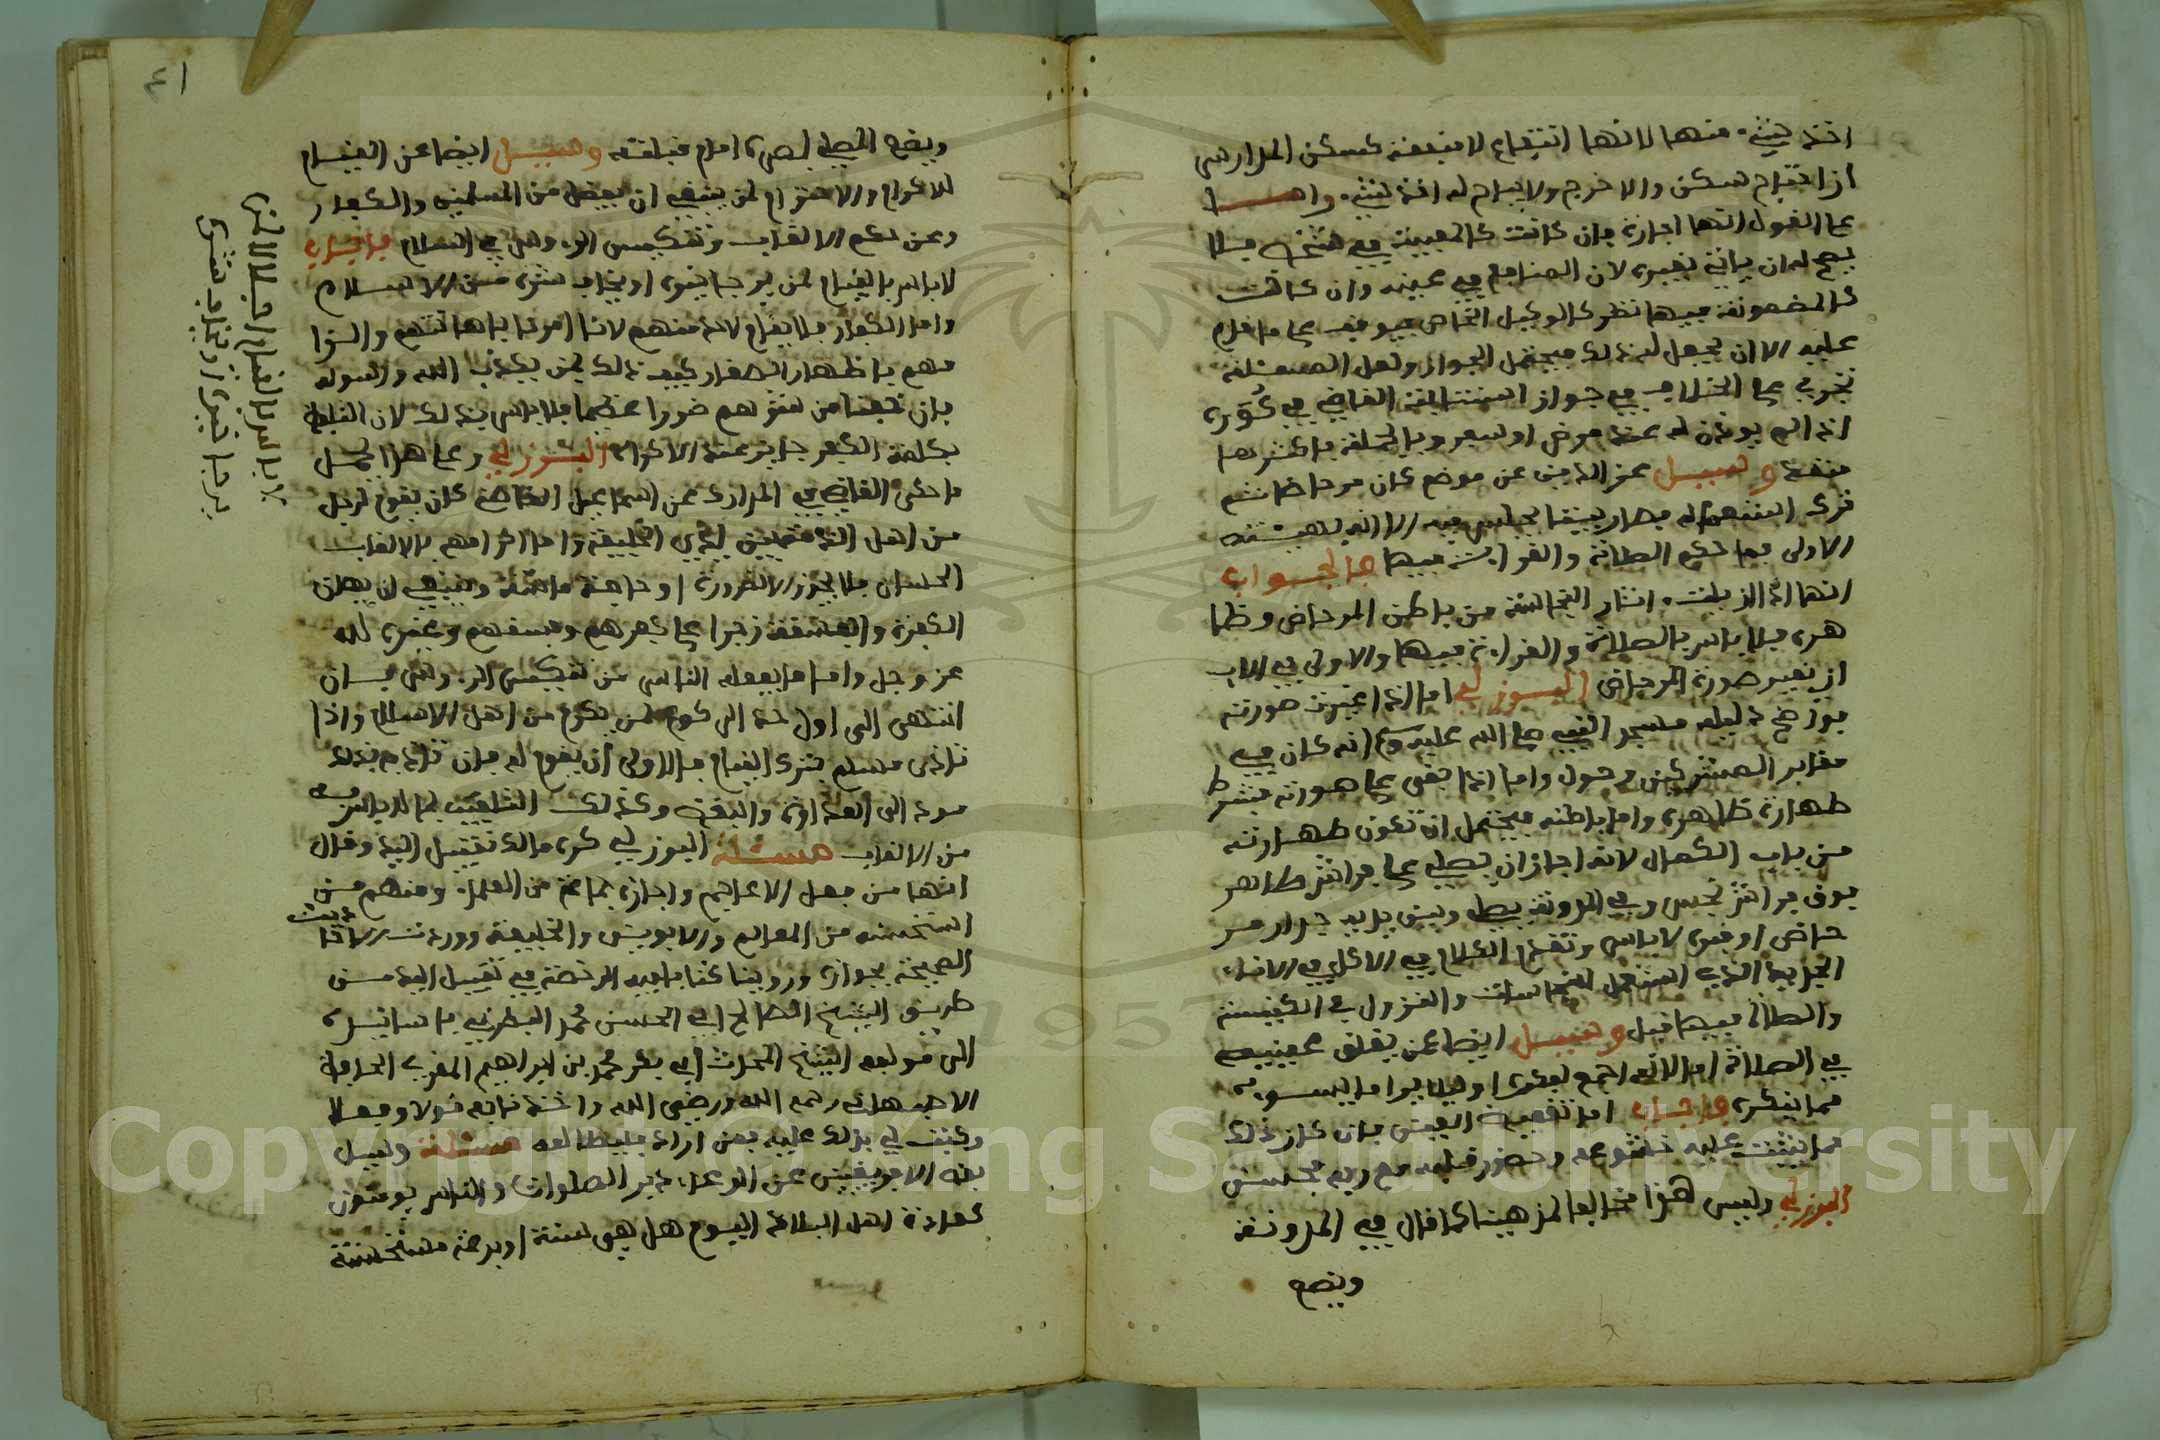 اخذ شيء منها لانها انتفاع لا منفعة كسكن المدارس
ان احتاج سكن والا خرج ولا يباح له اخذ شيء واما
على القول انها اجارة فان كانت كالمعينة في شخص فلا
يصح له ان ياتي بغيره لان المنافع في عينه وان كانت
كالمضمونة فيها نظر كالوكيل الخاص فيوقف على ما قدم
عليه الا ان يجعل له ذلك فيحتمل الجواز ولعل المسئلة
تجري على الخلاف في جواز استنابة القاضي في
اذا لم يوذن له عند مرض او سفر وبالجملة فاكثرها
منفعة وسئيل عز الدين عن موضع كان مرحاضا ثم
ترك استعماله فصار بيتا يجلس فيه الا انه لهيئته
الاولى فما حكم الصلاة والقراءة فيها فالجواب
انها اذا ازيلت اثار النجاسة من باطن المرحاض وظا
هره فلا باس بالصلاة والقراءة فيها والاولى في الادب
ان يغير صورة المرحاض البرزلي اما اذا اغيرت صورته
فوزخ دليله مسجد النبي صلى الله عليه وسلم انه كان فيه
مقابر المشركين فحول واما اذا بقي على صورته فبشرط
طهارة ظاهره واما باطنه فيحتمل ان تكون طهارته
من باب الكمال لانه اجاز ان يصلي على فراش طاهر
فوق فراش نجس وفي المدونة يصلي وبين يديه جدار مر
حاض او قبر لا باس وتقدم الكلام في الاكل في الاناء
الجديد الذي استعمل للنجاسات والنزول في الكنيسة
والصلاة فيها قبل وسئيل ايضا عن يغلق عينيه
في الصلاة اما لانه اجمع لفكره او ليلا يرا ما يسوءه
مما ينكره فاجاب اما تغميض العين فان كان ذلك
مما يشتت عليه خشوعه وحضور قلبه مع ربه فحسن
البرزلي وليس هذا مخالفا لمذهبنا كما قال في المدونة
ويضع
٤١
ويضع المصلي بصره امام قبلته وسئيل ايضا عن القيام
للاكرام والاحترام لمن ينبغي ان يعظم من المسلمين والكفار
وعن حكم الالقاب وتنكيس الروس في السلام فاجاب
لا باس بالقيام لمن يرجا خيره او يخاف شره من الاسلام
واما الكفار فلا يقام لاحد منهم لانا امرنا باهانتهم والزا
مهم باظهار الصغار كيف ذلك لمن يكذب الله ورسوله
فان خفنا من شرهم ضررا عظيما فلا باس بذلك لان التلفظ
بكلمة الكفر جايز عند الاكراه البرزلي وعلى هذا يحمل
ما حكى القاضي في المدارك عن اسماعيل القاضي كان يقوم لرجل
من اهل الذمة بين يدي الخليفة واما اكرامهم بالالقاب
الحسان فلا يجوز الا لضرورة او حاجة ماسة وينبغي ان يهان
الكفرة والفسقة زجرا على كفرهم وفسقهم وغيرة لله
عز وجل واما ما يفعله الناس من تنكيس الروس فان
انتهى الى اول حد الركوع لمن يكرم من اهل الاسلام واذا
تاذى مسلم بترك القيام فالاولى ان يقوم له فان تاذيه بذلك
مود الى العداوة والبغض وكذلك التلقيب لما لا باس به
من الالقاب مسئلة البرزلي كره مالك تقبيل اليد وقال
انها من فعل الاعاجم واجازه جماعة من العلماء ومنهم من
استحسنه من المعلم والابوين والخليفة ووردت الاحاديث
الصحيحة بجوازه وروينا كتابا فيه الرخصة في تقبيل اليد من
طريق الشيخ الصالح ابي الحسن محمد البطرني باسانيده
الى مولفه الشيخ المحدث ابي بكر محمد بن ابراهيم المقري الحافظ
الاصبهاني رحمه الله ورضي الله واخذنا به قولا وفعلا
وكتب لي بذلك عليه فمن اراده فليطالعه مسئلة وسيل
بعد الافريقيين عن الدعاء دبر الصلوات والناس يومنون
كعادة اهل البلاد اليوم هل هي سنة او بدعة مستحسنة
لا باس بالقيام اجلالا لمن
يرجا خيره او يخاف شره